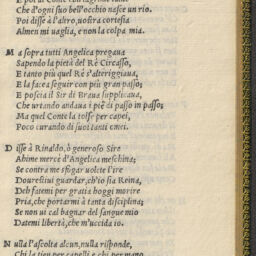 Che d'ogni suo bell'occhio nasce un rio.
Poi disse à l'altro, vostra cortesia
Almen mi vaglia, e non la colpa mia.
M a sopra tutti Angelica pregaua
Sapendo la pietà del Rè Circasso,
E tanto più quel Rè s'alteriggiaua,
E la facea seguir con più gran passo;
E poscia il Sir di Braua supplicaua,
Che urtando andaua i pte di passo in passo;
Ma quel Conte la tolse per capei,
Poco curando di suoi tanti omei.
D isse à Rinaldo, ò generoso Sire
Ahime mercè d'Angelica meschina;
Se contra me sfogar volete l'ire
Douresti ui guardar, ch'io sia Reina,
Deh fatemi per gratia hoggi morire
Pria, che portarmi à tanta disciplina;
Se non ui cal bagnar del sangue mio
Datemi libertà, che m'uccida io.
N ulla l'ascolta alcun, nulla risponde,
Chi la tien per capelli e chi per mano